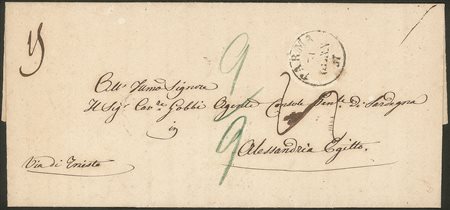 PARMA
9
All' Illmo Signore
Il Sig.r Cav.re Gobbi Agente Console Gen.le di Sardegna
in
9
Alessandria Egitto.
Via di Trieste